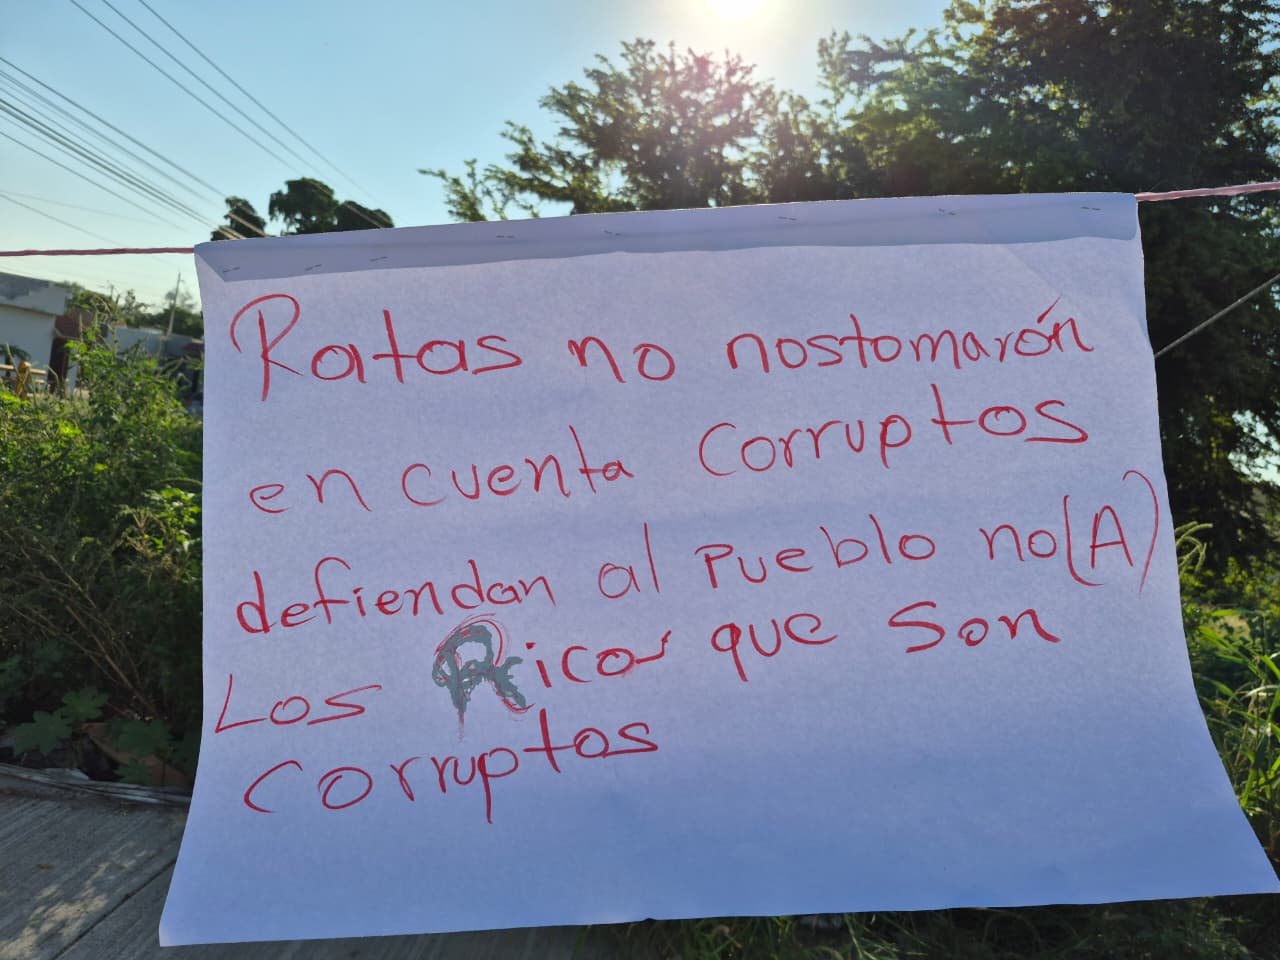 Ratas no nostomarón
en cuenta Corruptos
defiendan al Pueblo no(A)
Los Ricos que Son
Corruptos